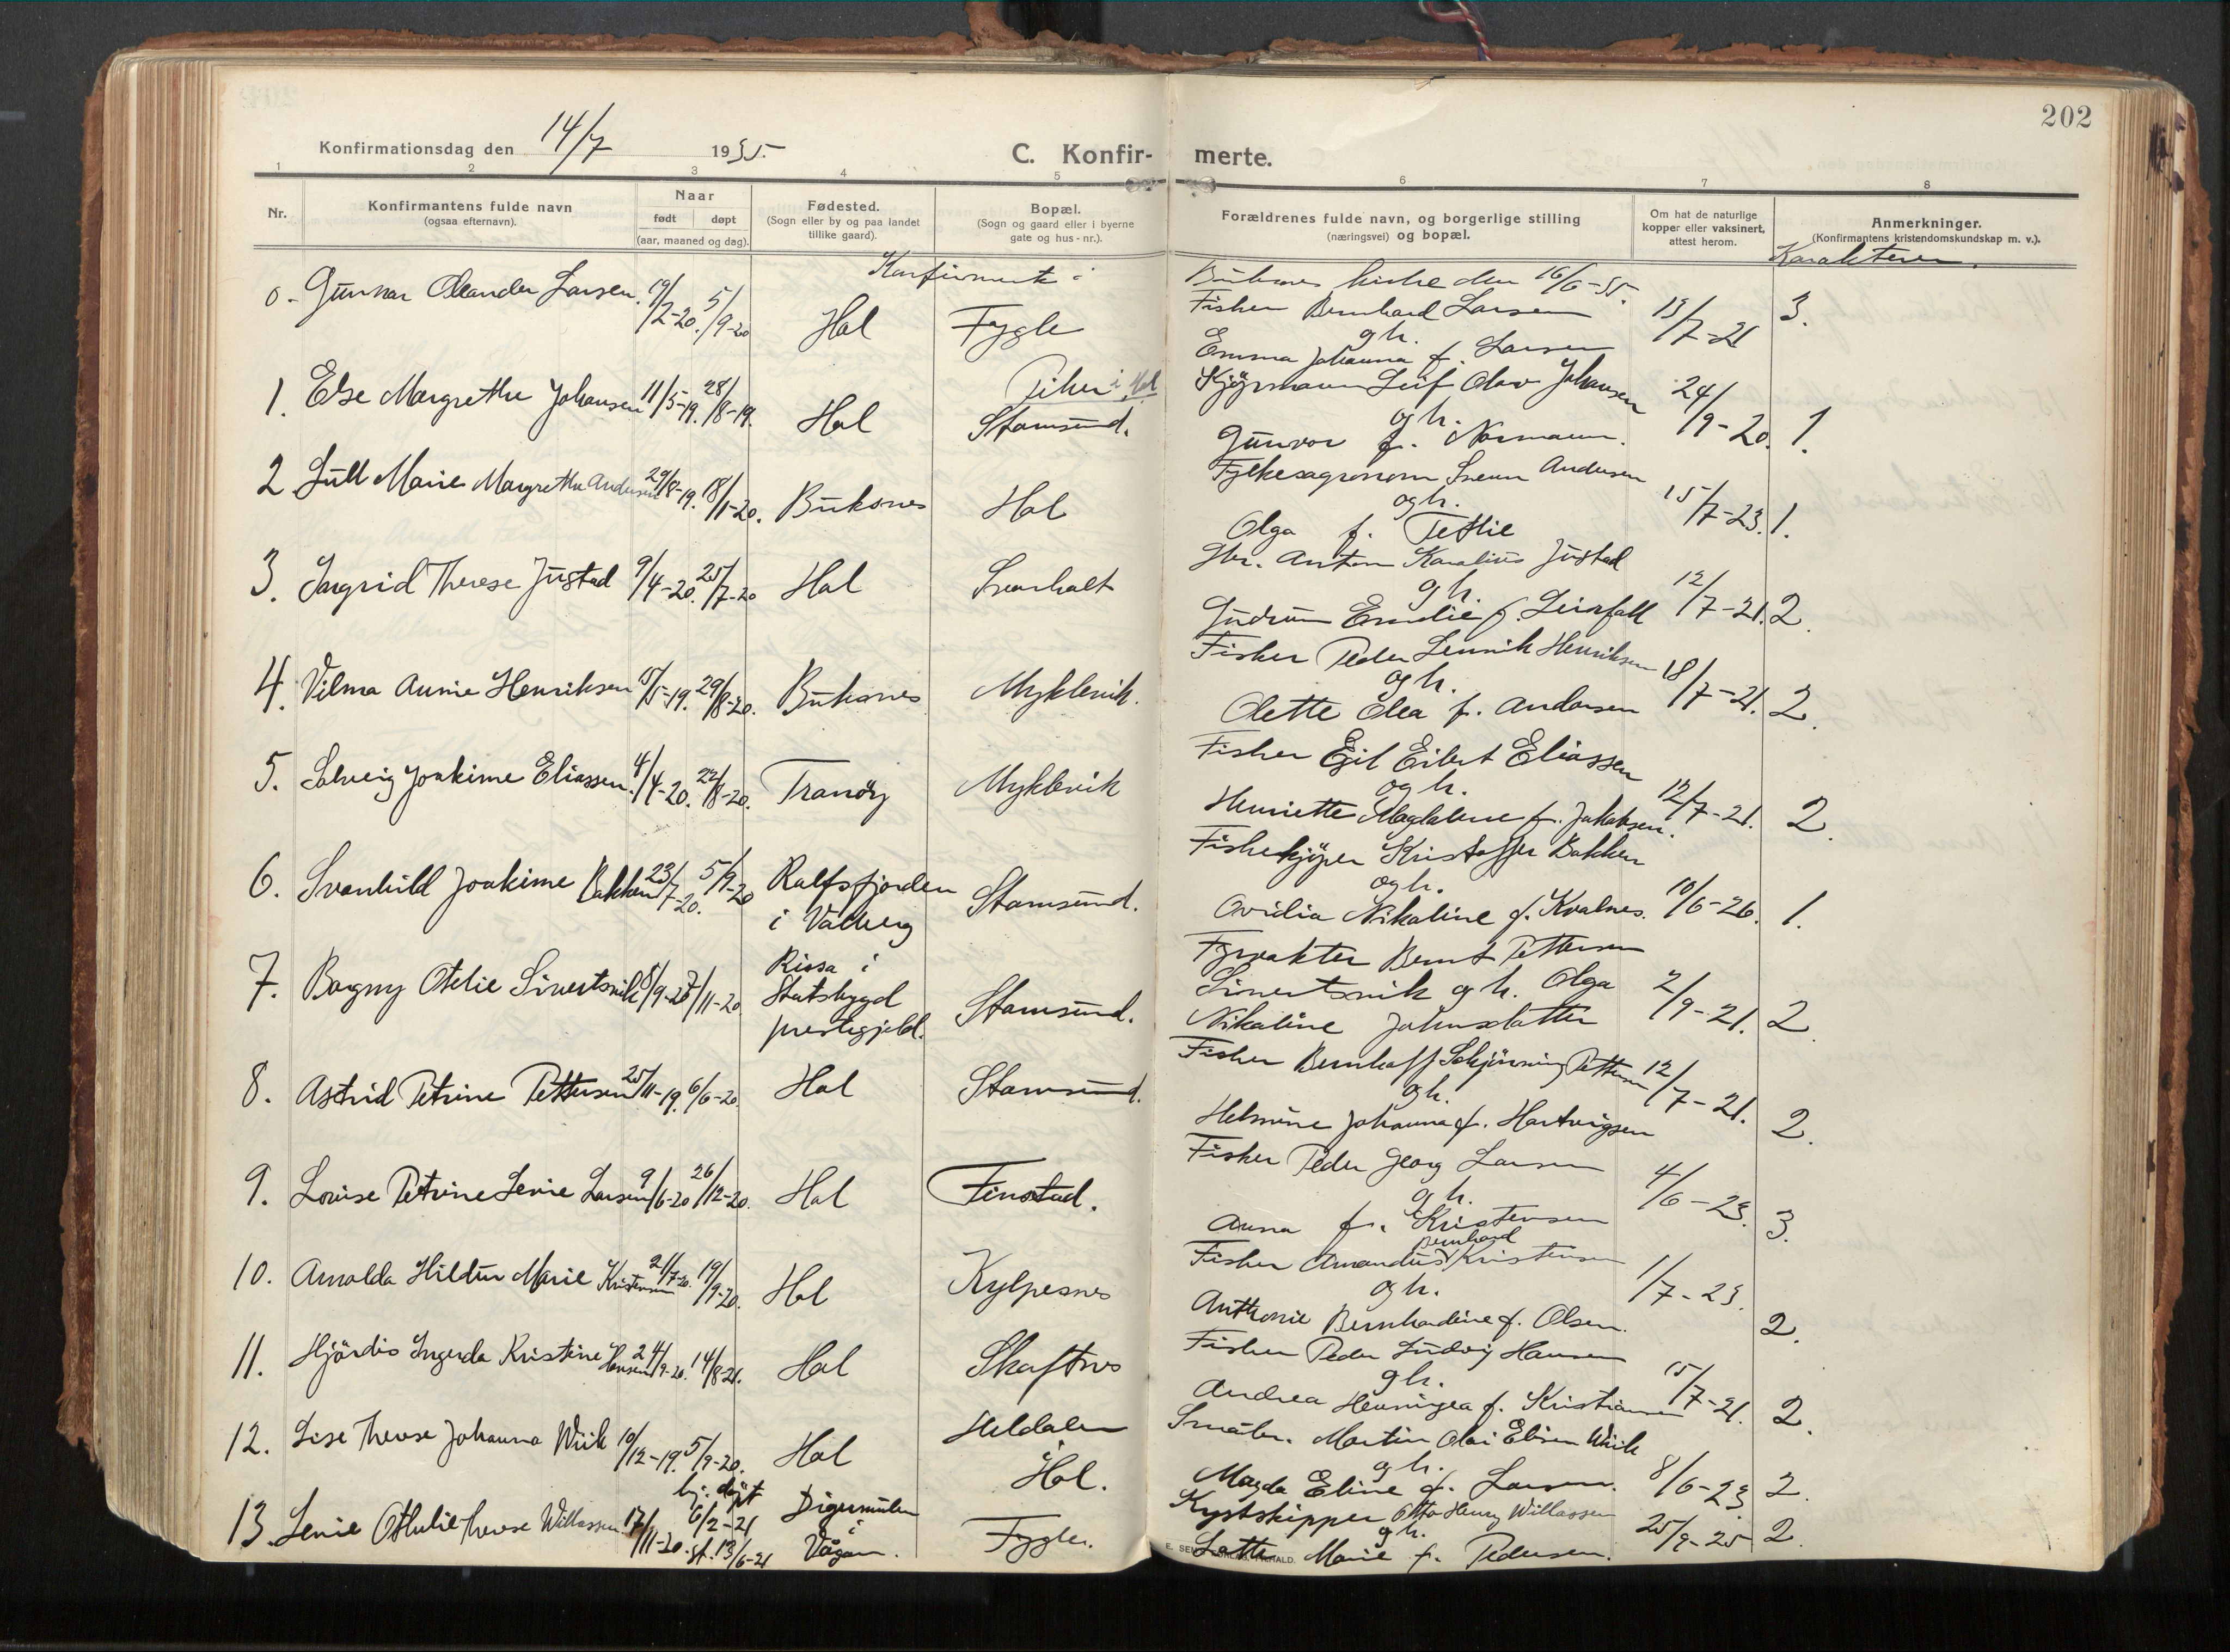 202
Konfirmationsdag den 14/7 1935.
C. Konfir- merte.
1 2 3 4 5 6 7 8
Nr.
Konfirmantens fulde navn
(ogsaa efternavn).
Naar
født døpt
(aar, maaned og dag).
Fødested.
(Sogn eller by og paa landet
tillike gaard).
Bopæl.
(Sogn og gaard eller i byerne
gate og hus-nr.).
Forældrenes fulde navn, og borgerlige stilling
(næringsvei) og bopæl.
Om hat de naturlige
kopper eller vaksinert,
attest herom.
Anmerkninger.
(Konfirmantens kristendomskundskap m. v.).
Karakterer.
Konfirmert i Buksnes kirke den 16/6-35.
0. Gunnar Oleander Larsen 19/2-20. 5/9-20 Hol Fygle
Fisker Bernhard Larsen
gh.
Emma Johanna f. Larsen
13/7-21 3.
Piker i Hol
1. Else Margrethe Johansen 11/5-19. 28/8-19. Hol Stamsund.
Kjøpmann Leif Olav Johansen
og h.
Gunvor f. Normann.
24/9-20. 1.
2. Lull Marie Margrethe Andersen 29/8-19. 18/1-20. Buksnes Hol
Fylkesagronom Svenn Andersen
og h.
Olga f. Tetlie
15/7-23. 1.
3. Ingrid Therese Justad 9/4-20. 25/7-20 Hol Svarholt
Gbr. Anton Karelius Justad
g h.
Gudrun Emilie f. Leirfall
12/7-21. 2.
4. Vilma Annie Henriksen 15/5-19. 29/8-20. Buksnes Myklevik.
Fisker Peder Lennik Henriksen
og h.
Olette Olea f. Andersen
18/7-21. 2.
5. Solveig Joakime Eliassen 4/4-20. 22/8-20. Tranöy Myklevik
Fisker Egil Eilert Eliassen
og h.
Henriette Magdalene f. Jakobsen.
12/7-21. 2.
6. Svanhild Joakime Bakken 23/7-20. 5/9-20 Ralfsfjorden
i Valberg
Stamsund.
Fiskekjøper Kristoffer Bakken
og h.
Ovidia Nikoline f. Kvalnes.
10/6-26. 1.
7. Borgny Otelie Sivertsvik 8/9-20 7/11-20. Rissa i
Statsbygd
prestegjeld.
Stamsund.
Fyrvakter Bernt Pettersen
Sivertsvik g h. Olga
Nikoline Johnsdatter
2/9-21. 2.
8. Astrid Petrine Pettersen 25/11-19. 6/6-20. Hol Stamsund.
Fisker Bernhoff Schjönning Pettersen
gh.
Helmine Johanna f. Hartvigsen
12/7-21. 2.
9. Lovise Petrine Lenie Larsen 9/6-20 26/12-20. Hol Finstad.
Fisker Peder Georg Larsen
g h.
Anna f. Kristensen
4/6-23. 3.
10. Arnolda Hildur Marie Kristensen 21/7-20. 19/9-20. Hol Kylpesnes
Bernhard
Fisker Amandus Kristensen
og h.
Anthonie Bernhardine f. Olsen.
1/7-23. 2.
11. Hjördis Ingerda Kristine Hansen 24/9-20. 14/8-21. Hol Skaftnes
Fisker Peder Ludvig Hansen
gh.
Andrea Henningea f. Kristiansen
15/7-21. 2.
12. Lise Therese Johanna Wiik 10/12-19. 5/9-20. Hol Heldalen
i
Hol.
Småbr. Martin Olai Elisen Wiik
g h.
Magda Eline f. Larsen.
8/6-23 2.
13. Lenie Othelie Therese Willassen 17/11-20. hj. döpt
6/2-21
st. 13/6-21
Digermulen
i
Vågan.
Fygle.
Kystskipper Otto Henry Willassen
g h.
Lotte Marie f. Pedersen.
25/9-25 2.